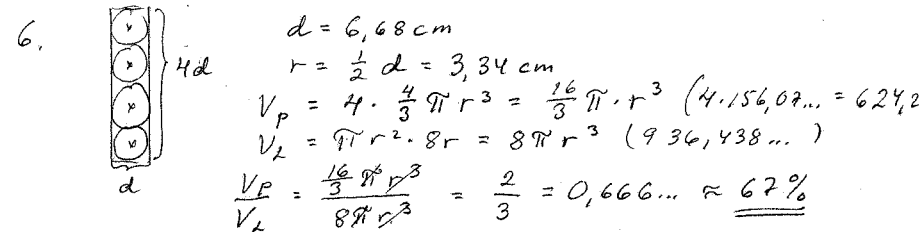 6.
4d
d
d = 6,68 cm
r = 1/2 d = 3,34 cm
V_p = 4 · 4/3 π r³ = 16/3 π · r³ (4·156,07... = 624,2
V_L = π r² · 8r = 8π r³ (936,438...)
V_P/V_L = (16/3 π r³)/(8π r³) = 2/3 = 0,666... ≈ 67%